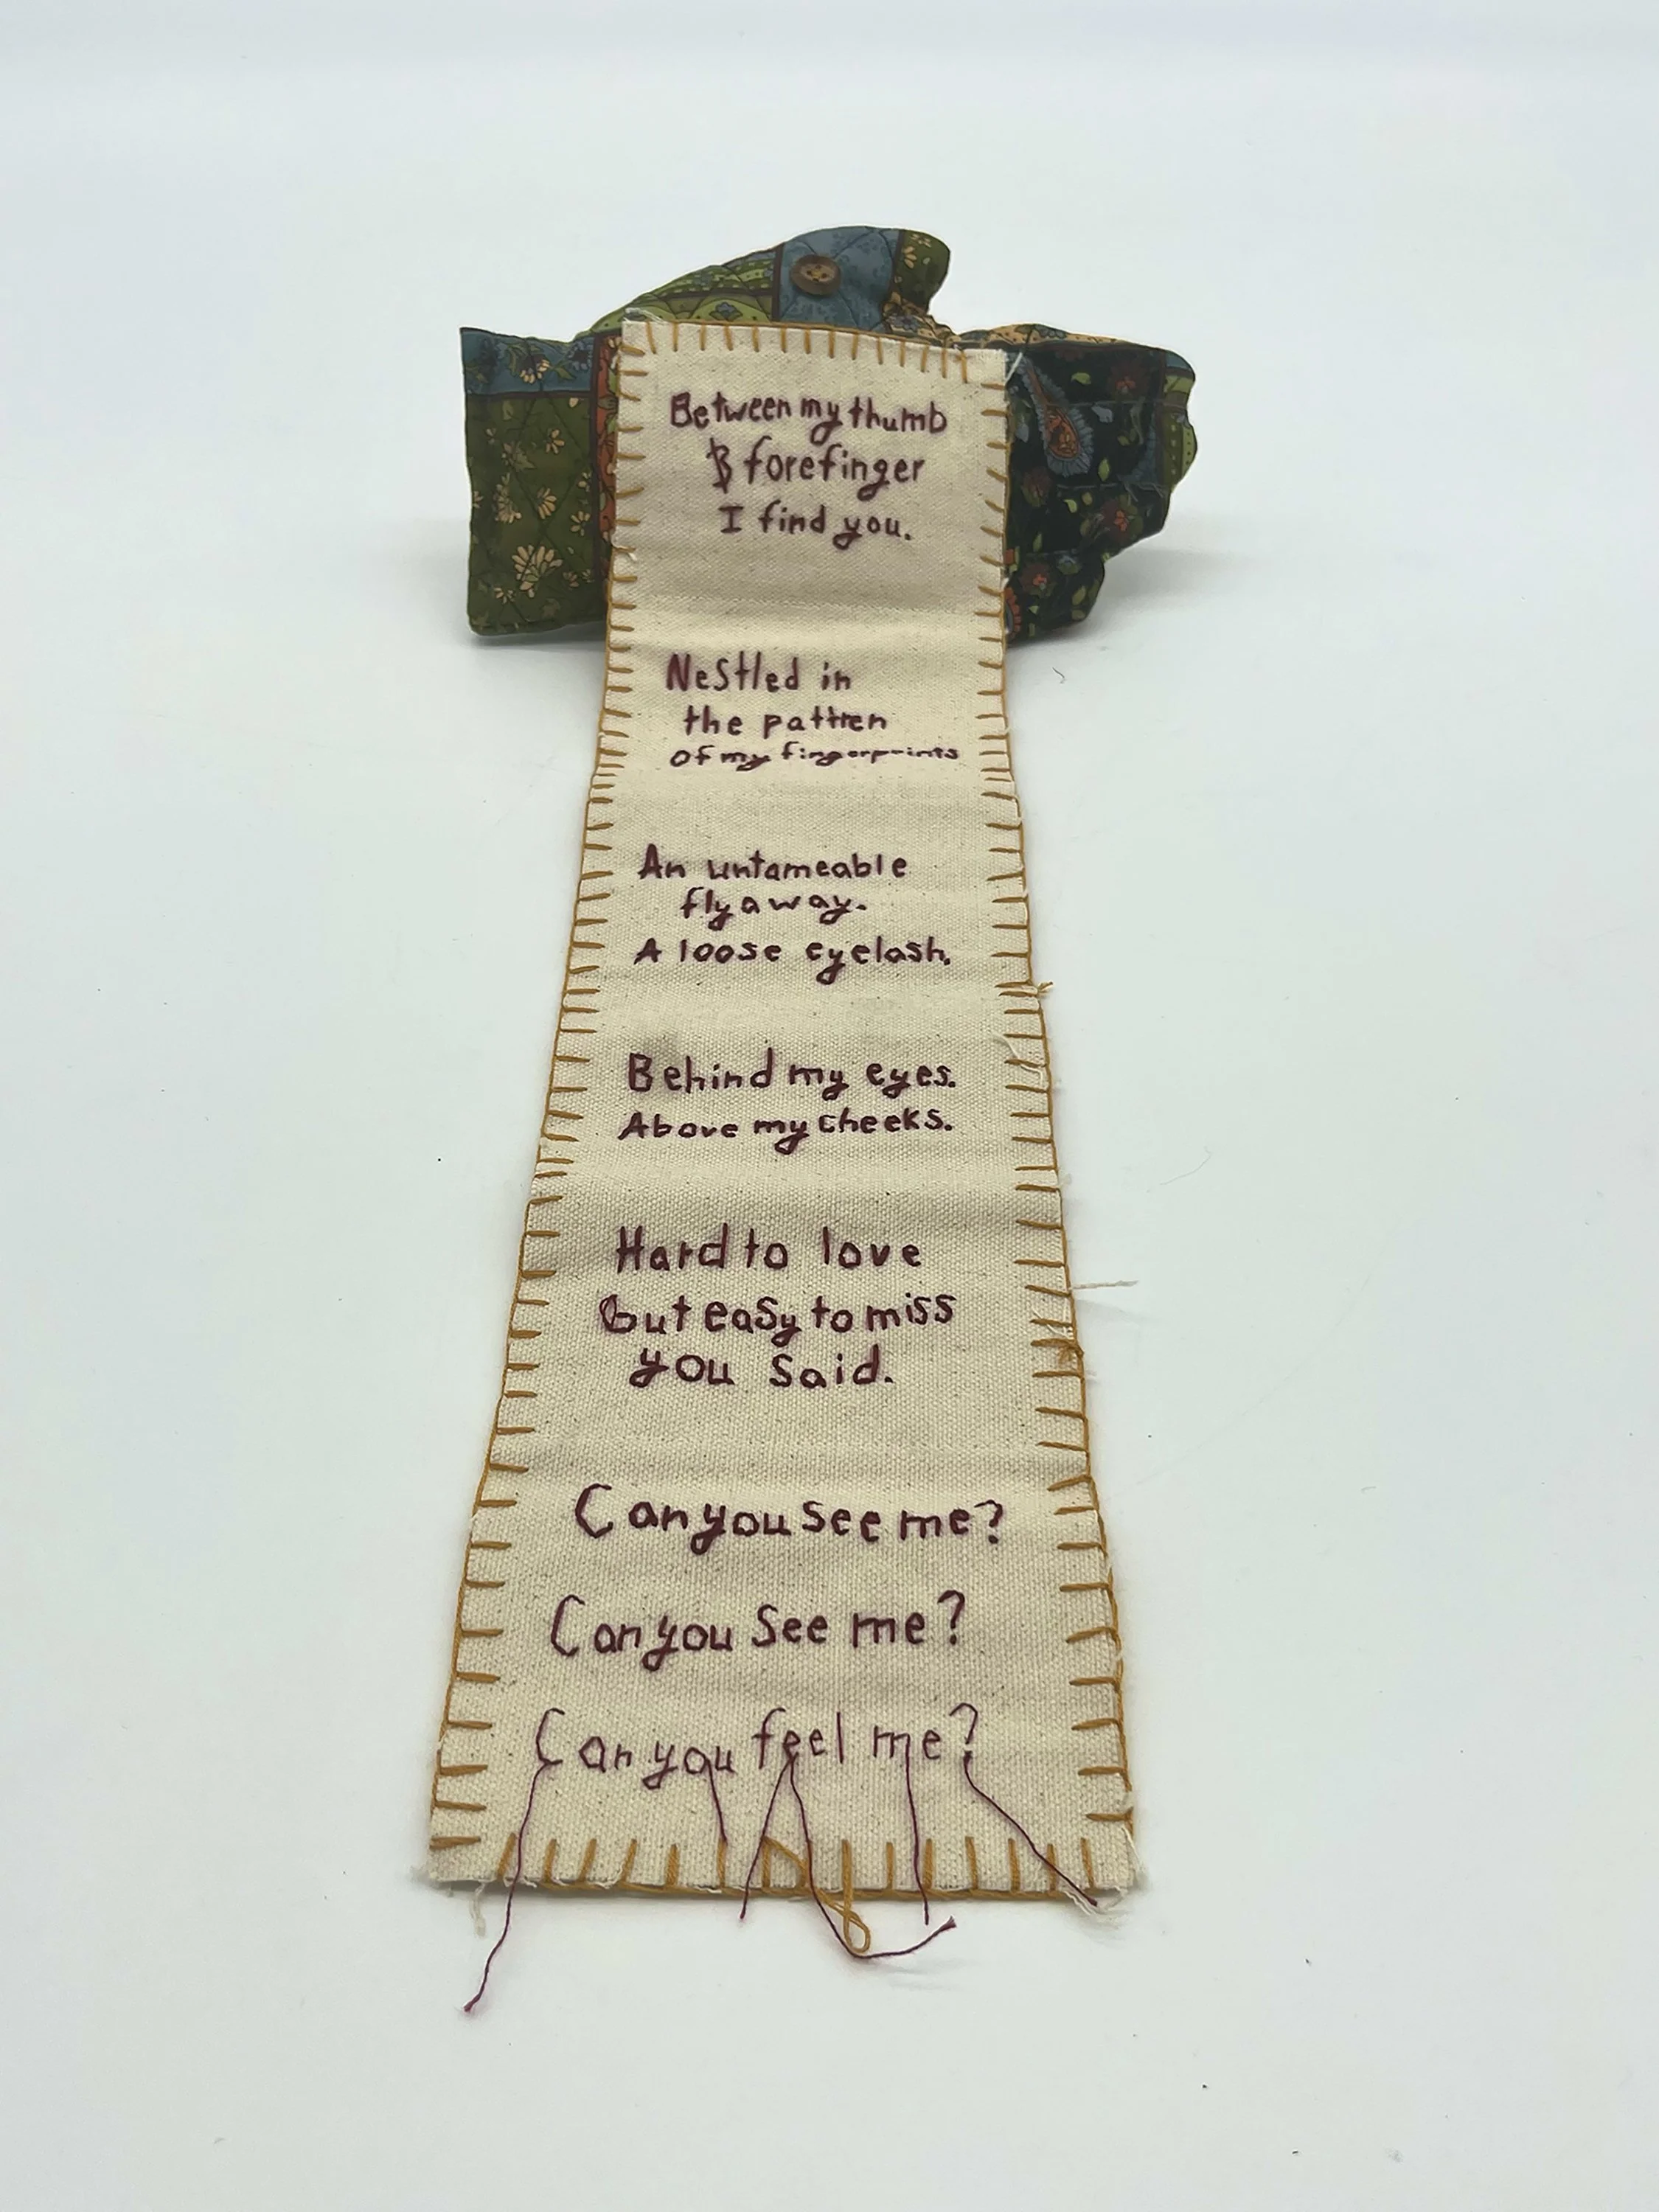 Between my thumb
& forefinger
I find you.
Nestled in
the pattren
of my fingerprints
An untameable
flyaway.
A loose eyelash.
Behind my eyes.
Above my cheeks.
Hard to love
but easy to miss
you said.
Can you see me?
Can you see me?
Can you feel me?